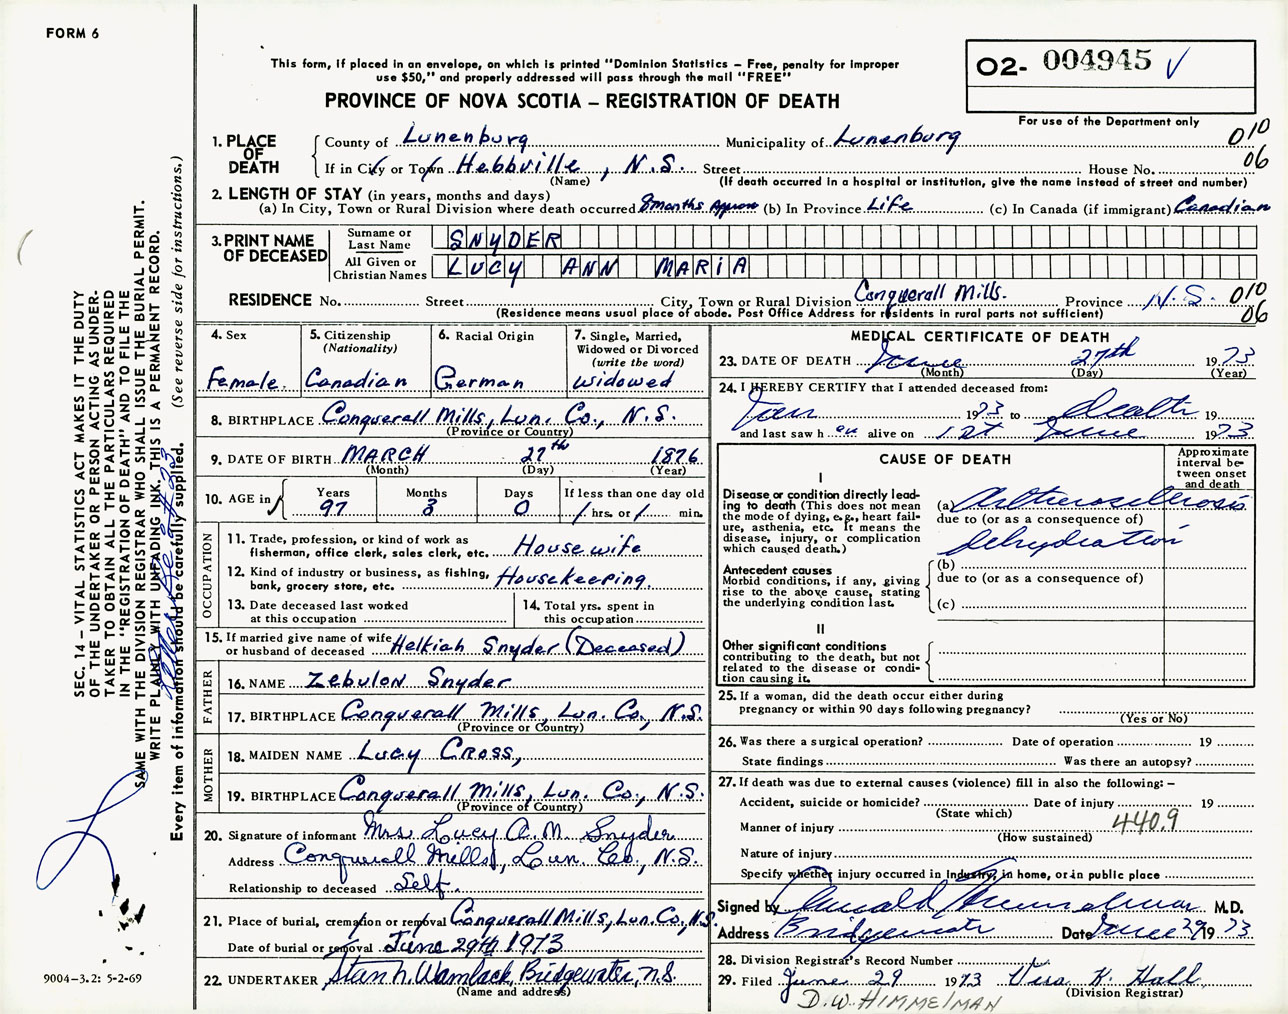 FORM 6
This form, if placed in an envelope, on which is printed "Dominion Statistics – Free, penalty for improper
use $50," and properly addressed will pass through the mail "FREE"
PROVINCE OF NOVA SCOTIA – REGISTRATION OF DEATH
02- 004945 √
For use of the Department only
1. PLACE OF DEATH
County of Lunenburg Municipality of Lunenburg 010
If in City or Town Hebbville, N.S. Street House No. 06
(Name) (If death occurred in a hospital or institution, give the name instead of street and number)
2. LENGTH OF STAY (in years, months and days)
(a) In City, Town or Rural Division where death occurred 8 months approx (b) In Province Life (c) In Canada (if immigrant) Canadian
3. PRINT NAME OF DECEASED
Surname or Last Name SNYDER
All Given or Christian Names LUCY ANN MARIA
RESIDENCE No. Street City, Town or Rural Division Conquerall Mills. Province N.S. 010
(Residence means usual place of abode. Post Office Address for residents in rural parts not sufficient) 06
4. Sex Female.
5. Citizenship (Nationality) Canadian
6. Racial Origin German
7. Single, Married, Widowed or Divorced (write the word) Widowed
8. BIRTHPLACE Conquerall Mills, Lun. Co., N.S.
(Province or Country)
9. DATE OF BIRTH MARCH 27th 1876
(Month) (Day) (Year)
10. AGE in Years 97 Months 3 Days 0 If less than one day old / hrs. or / min.
OCCUPATION
11. Trade, profession, or kind of work as
fisherman, office clerk, sales clerk, etc. Housewife
12. Kind of industry or business, as fishing,
bank, grocery store, etc. Housekeeping.
13. Date deceased last worked
at this occupation
14. Total yrs. spent in
this occupation
15. If married give name of wife
or husband of deceased Helkiah Snyder (Deceased)
FATHER
16. NAME Zebulon Snyder
17. BIRTHPLACE Conquerall Mills, Lun. Co., N.S.
(Province or Country)
MOTHER
18. MAIDEN NAME Lucy Cross,
19. BIRTHPLACE Conquerall Mills, Lun. Co., N.S.
(Province of Country)
20. Signature of informant Mrs. Lucy A.M. Snyder
Address Conquerall Mills, Lun. Co., N.S.
Relationship to deceased Self.
21. Place of burial, cremation or removal Conquerall Mills, Lun. Co, N.S.
Date of burial or removal June 29th 1973
22. UNDERTAKER Bridgewater, N.S.
(Name and address)
MEDICAL CERTIFICATE OF DEATH
23. DATE OF DEATH June 27th 1973
(Month) (Day) (Year)
24. I HEREBY CERTIFY that I attended deceased from:
Jan 1973 to death 19
and last saw her alive on 1st June 1973
CAUSE OF DEATH
Approximate interval between onset and death
I
Disease or condition directly leading to death (This does not
the mode of dying, e.g., heart failure, asthenia, etc. It means the
disease, injury, or complication
which caused death.)
(a) Arteriosclerosis
due to (or as a consequence of)
dehydration
Antecedent causes
Morbid conditions, if any, giving
rise to the above cause, stating
the underlying condition last.
(b)
due to (or as a consequence of)
(c)
II
Other significant conditions
contributing to the death, but not
related to the disease or condition causing it.
25. If a woman, did the death occur either during
pregnancy or within 90 days following pregnancy?
(Yes or No)
26. Was there a surgical operation? Date of operation 19
State findings Was there an autopsy?
27. If death was due to external causes (violence) fill in also the following: –
Accident, suicide or homicide? Date of injury 19
(State which)
Manner of injury 440.9
(How sustained)
Nature of injury
Specify whether injury occurred in Industry, in home, or in public place
Signed by Donald Himmelman M.D.
Address Bridgewater Date June 29 1973
28. Division Registrar's Record Number
29. Filed June 29 1973 Vera K. Hall
(Division Registrar)
D.W. HIMMELMAN
SEC. 14 – VITAL STATISTICS ACT MAKES IT THE DUTY
OF THE UNDERTAKER OR PERSON ACTING AS UNDERTAKER TO OBTAIN ALL THE PARTICULARS REQUIRED
IN THE "REGISTRATION OF DEATH" AND TO FILE THE
SAME WITH THE DIVISION REGISTRAR WHO SHALL ISSUE THE BURIAL PERMIT.
WRITE PLAINLY WITH UNFADING INK, THIS IS A PERMANENT RECORD.
Every item of information should be carefully supplied. (See reverse side for instructions.)
9004–3.2: 5-2-69